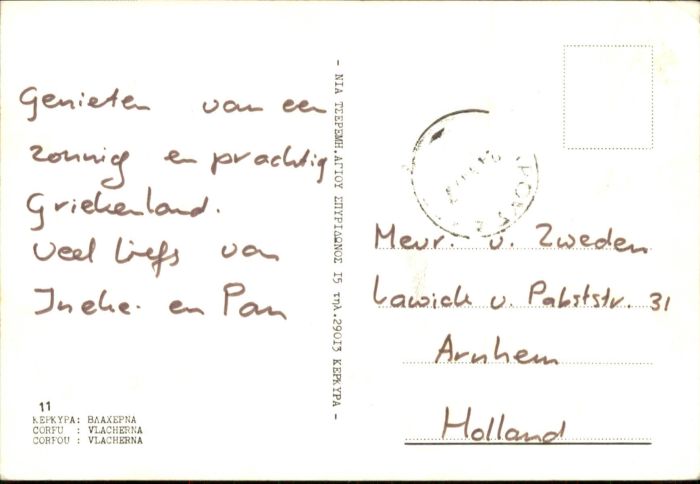 Genieten van een
zonnig en prachtig
Griekenland.
Veel liefs van
Ineke en Pan
11
ΚΕΡΚΥΡΑ: ΒΛΑΧΕΡΝΑ
CORFU : VLACHERNA
CORFOU : VLACHERNA
- ΝΙΑ ΤΣΕΡΕΜΗ. ΑΓΙΟΥ ΣΠΥΡΙΔΩΝΟΣ 15 τηλ. 29013 ΚΕΡΚΥΡΑ -
Mevr. v. Zweden
Lawick v. Pabststr. 31
Arnhem
Holland